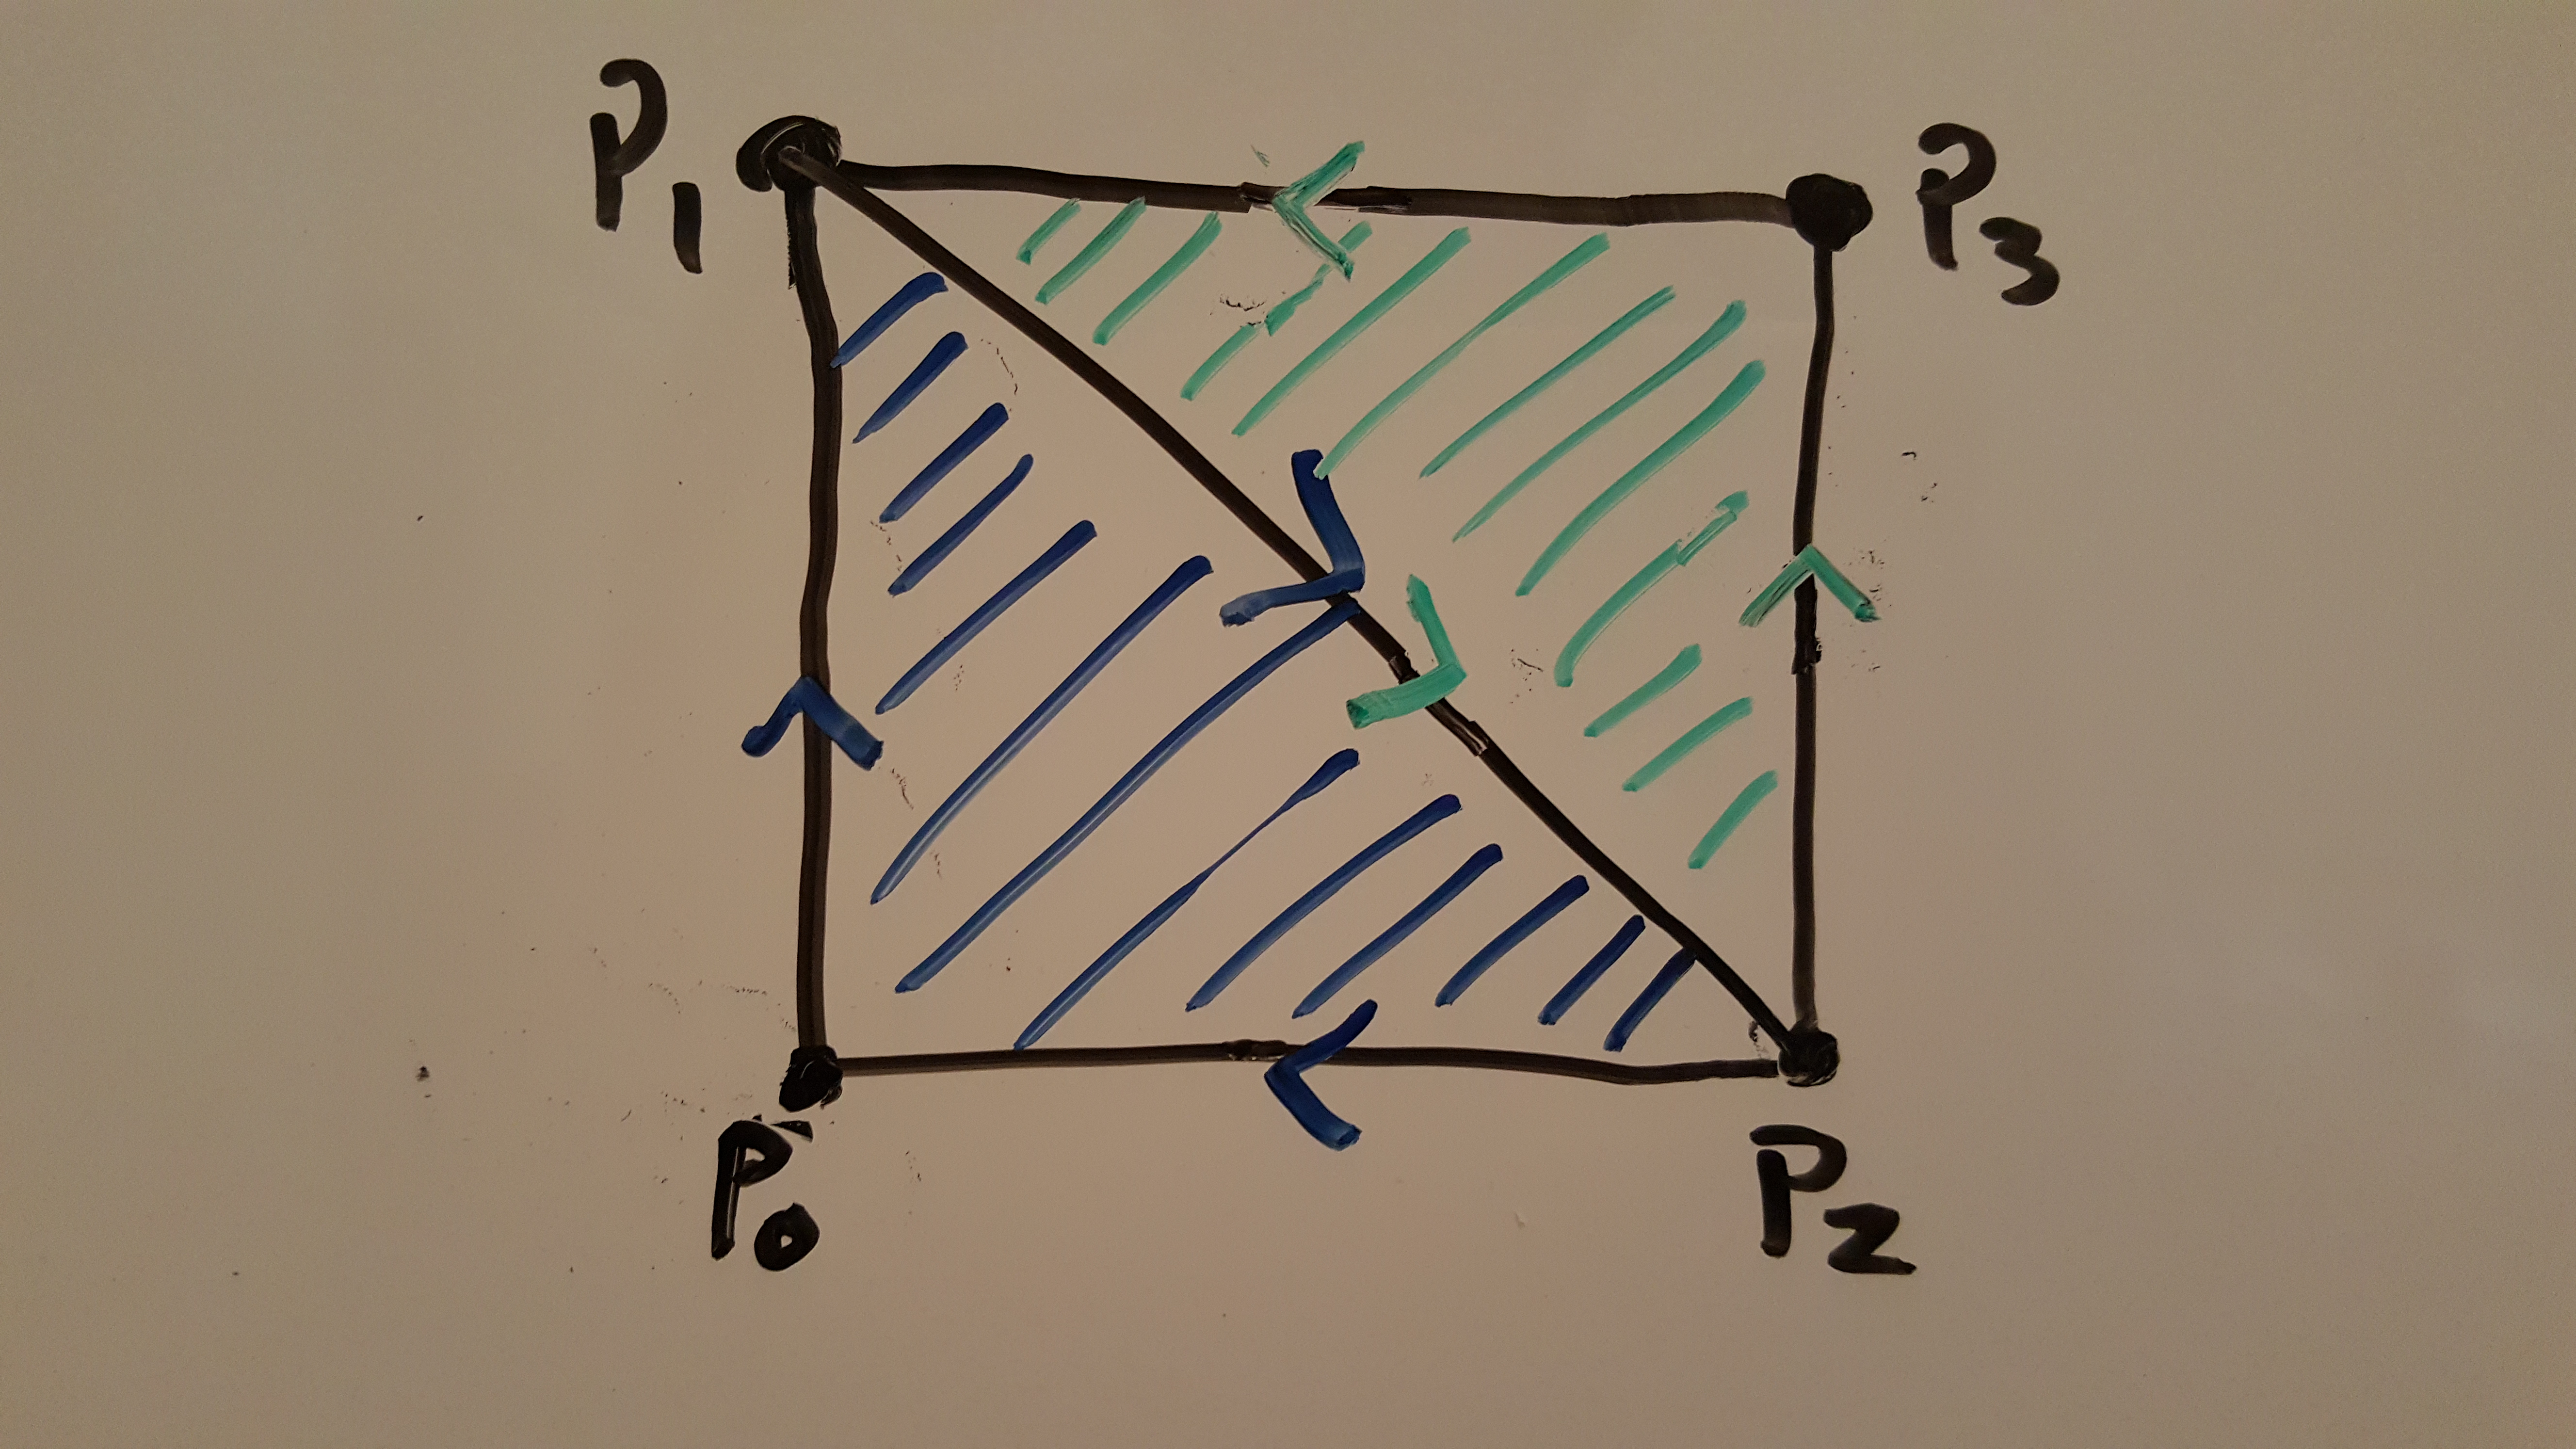 P1
P3
P0
P2